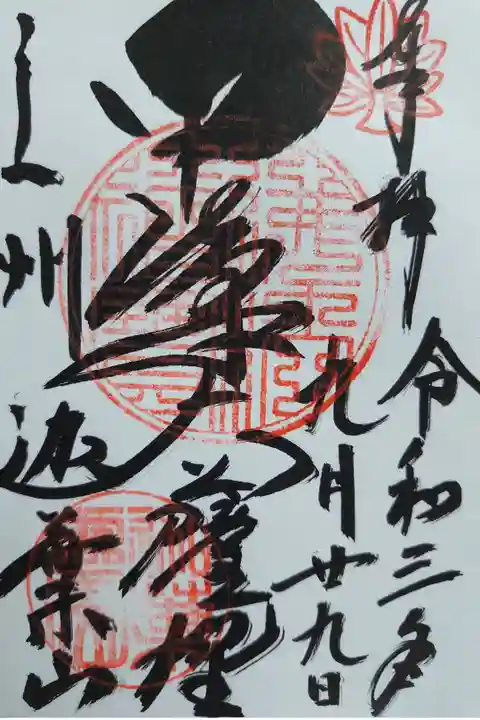 奉拝
令和三年
九月廿九日
中峯
薩埵
上州
迦葉山